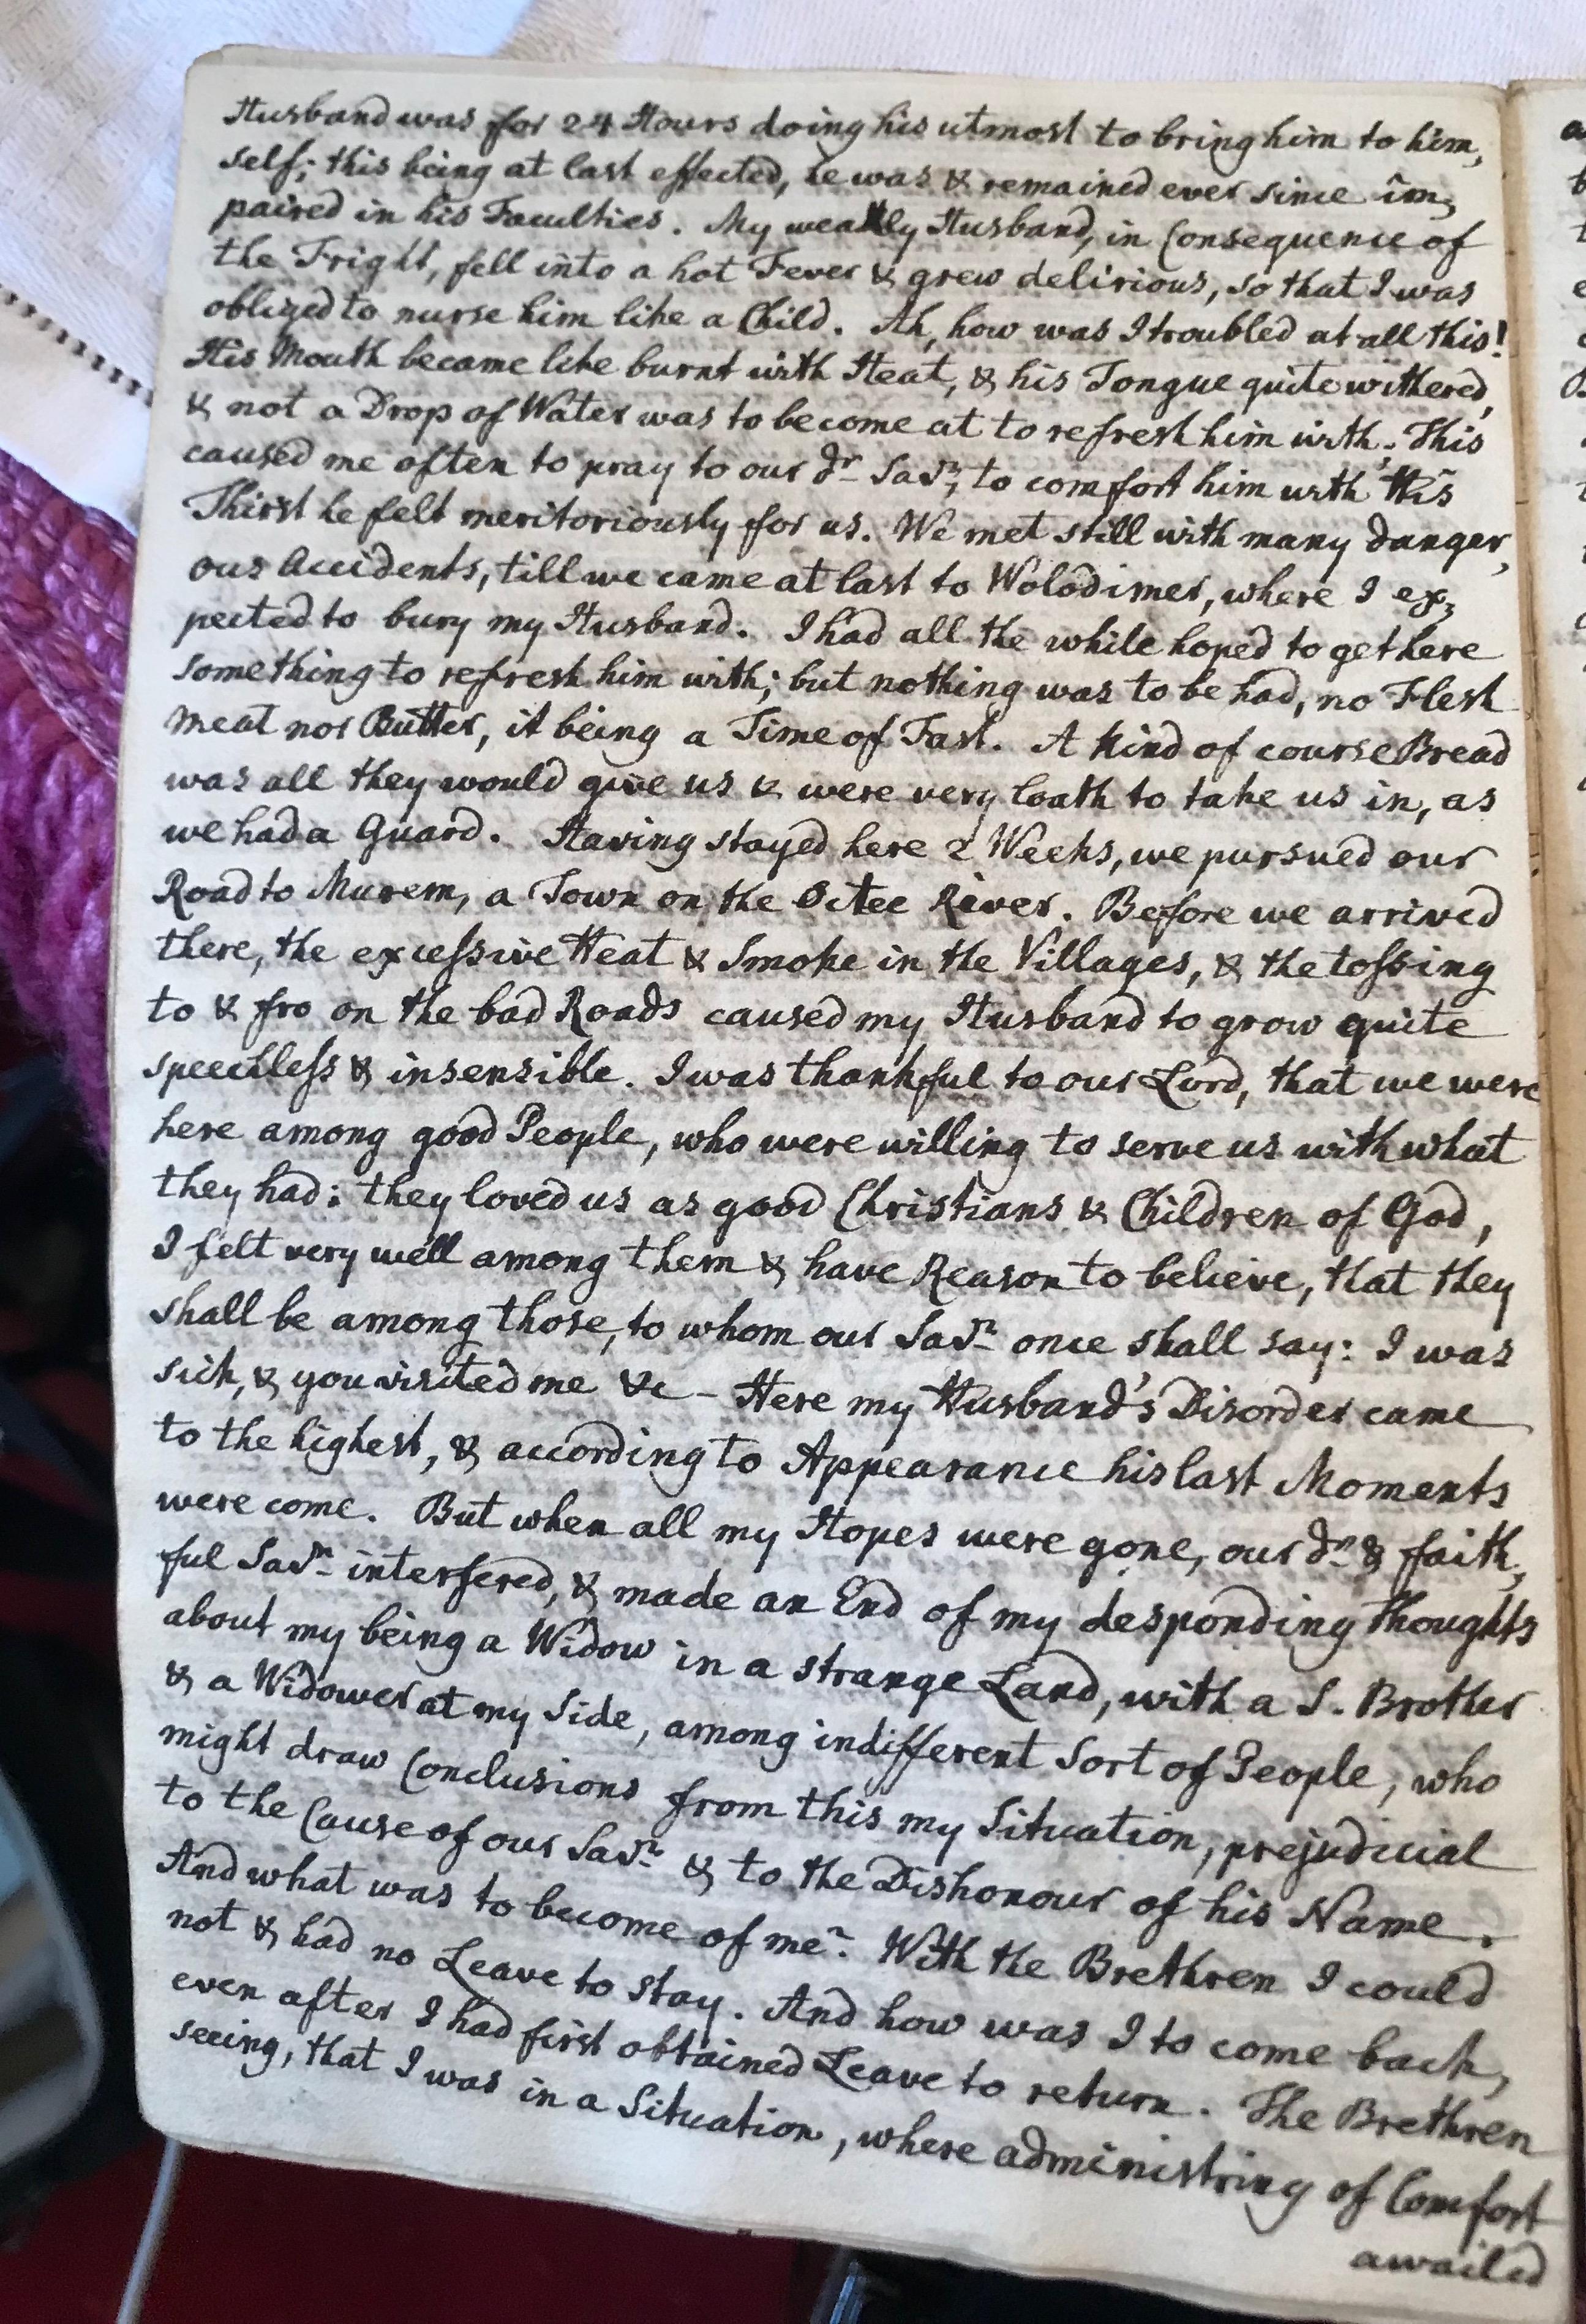 Husband was for 24 Hours doing his utmost to bring him to him,
self; this being at last effected, he was & remained ever since im,
paired in his Faculties. My weakly Husband, in Consequence of
the Fright, fell into a hot Fever & grew delirious, so that I was
obliged to nurse him like a Child. Ah, how was I troubled at all this!
His Mouth became like burnt with Heat, & his Tongue quite withered,
& not a Drop of Water was to become at to refresh him with. This
caused me often to pray to our dr Savr, to comfort him with this
Thirst he felt meritoriously for us. We met still with many danger,
ous Accidents, till we came at last to Wolodimer, where I ex,
pected to bury my Husband. I had all the while hoped to get here
something to refresh him with; but nothing was to be had, no Flesh
meat nor Butter, it being a Time of Fast. A Kind of course Bread
was all they would give us & were very loath to take us in, as
we had a Guard. Having stayed here 2 Weeks, we pursued our
Road to Murem, a Town on the Octee River. Before we arrived
there, the excessive Heat & Smoke in the Villages, & the tossing
to & fro on the bad Roads caused my Husband to grow quite
speechless & insensible. I was thankful to our Lord, that we were
here among good People, who were willing to serve us with what
they had; they loved us as good Christians & Children of God,
I felt very well among them & have Reason to believe, that they
shall be among those, to whom our Savr once shall say: I was
sick, & you visited me &c - Here my Husband's Disorder came
to the highest, & according to Appearance his last Moments
were come. But when all my Hopes were gone, our dr & faith,
ful Savr interfered, & made an End of my desponding thoughts
about my being a Widow in a strange Land, with a S. Brother
& a Widower at my Side, among indifferent Sort of People, who
might draw Conclusions from this my Situation, prejudicial
to the Cause of our Savr & to the Dishonour of his Name.
And what was to become of me? With the Brethren I could
not & had no Leave to stay. And how was I to come back,
even after I had first obtained Leave to return. The Brethren
seeing, that I was in a Situation, where administring of Comfort
availed